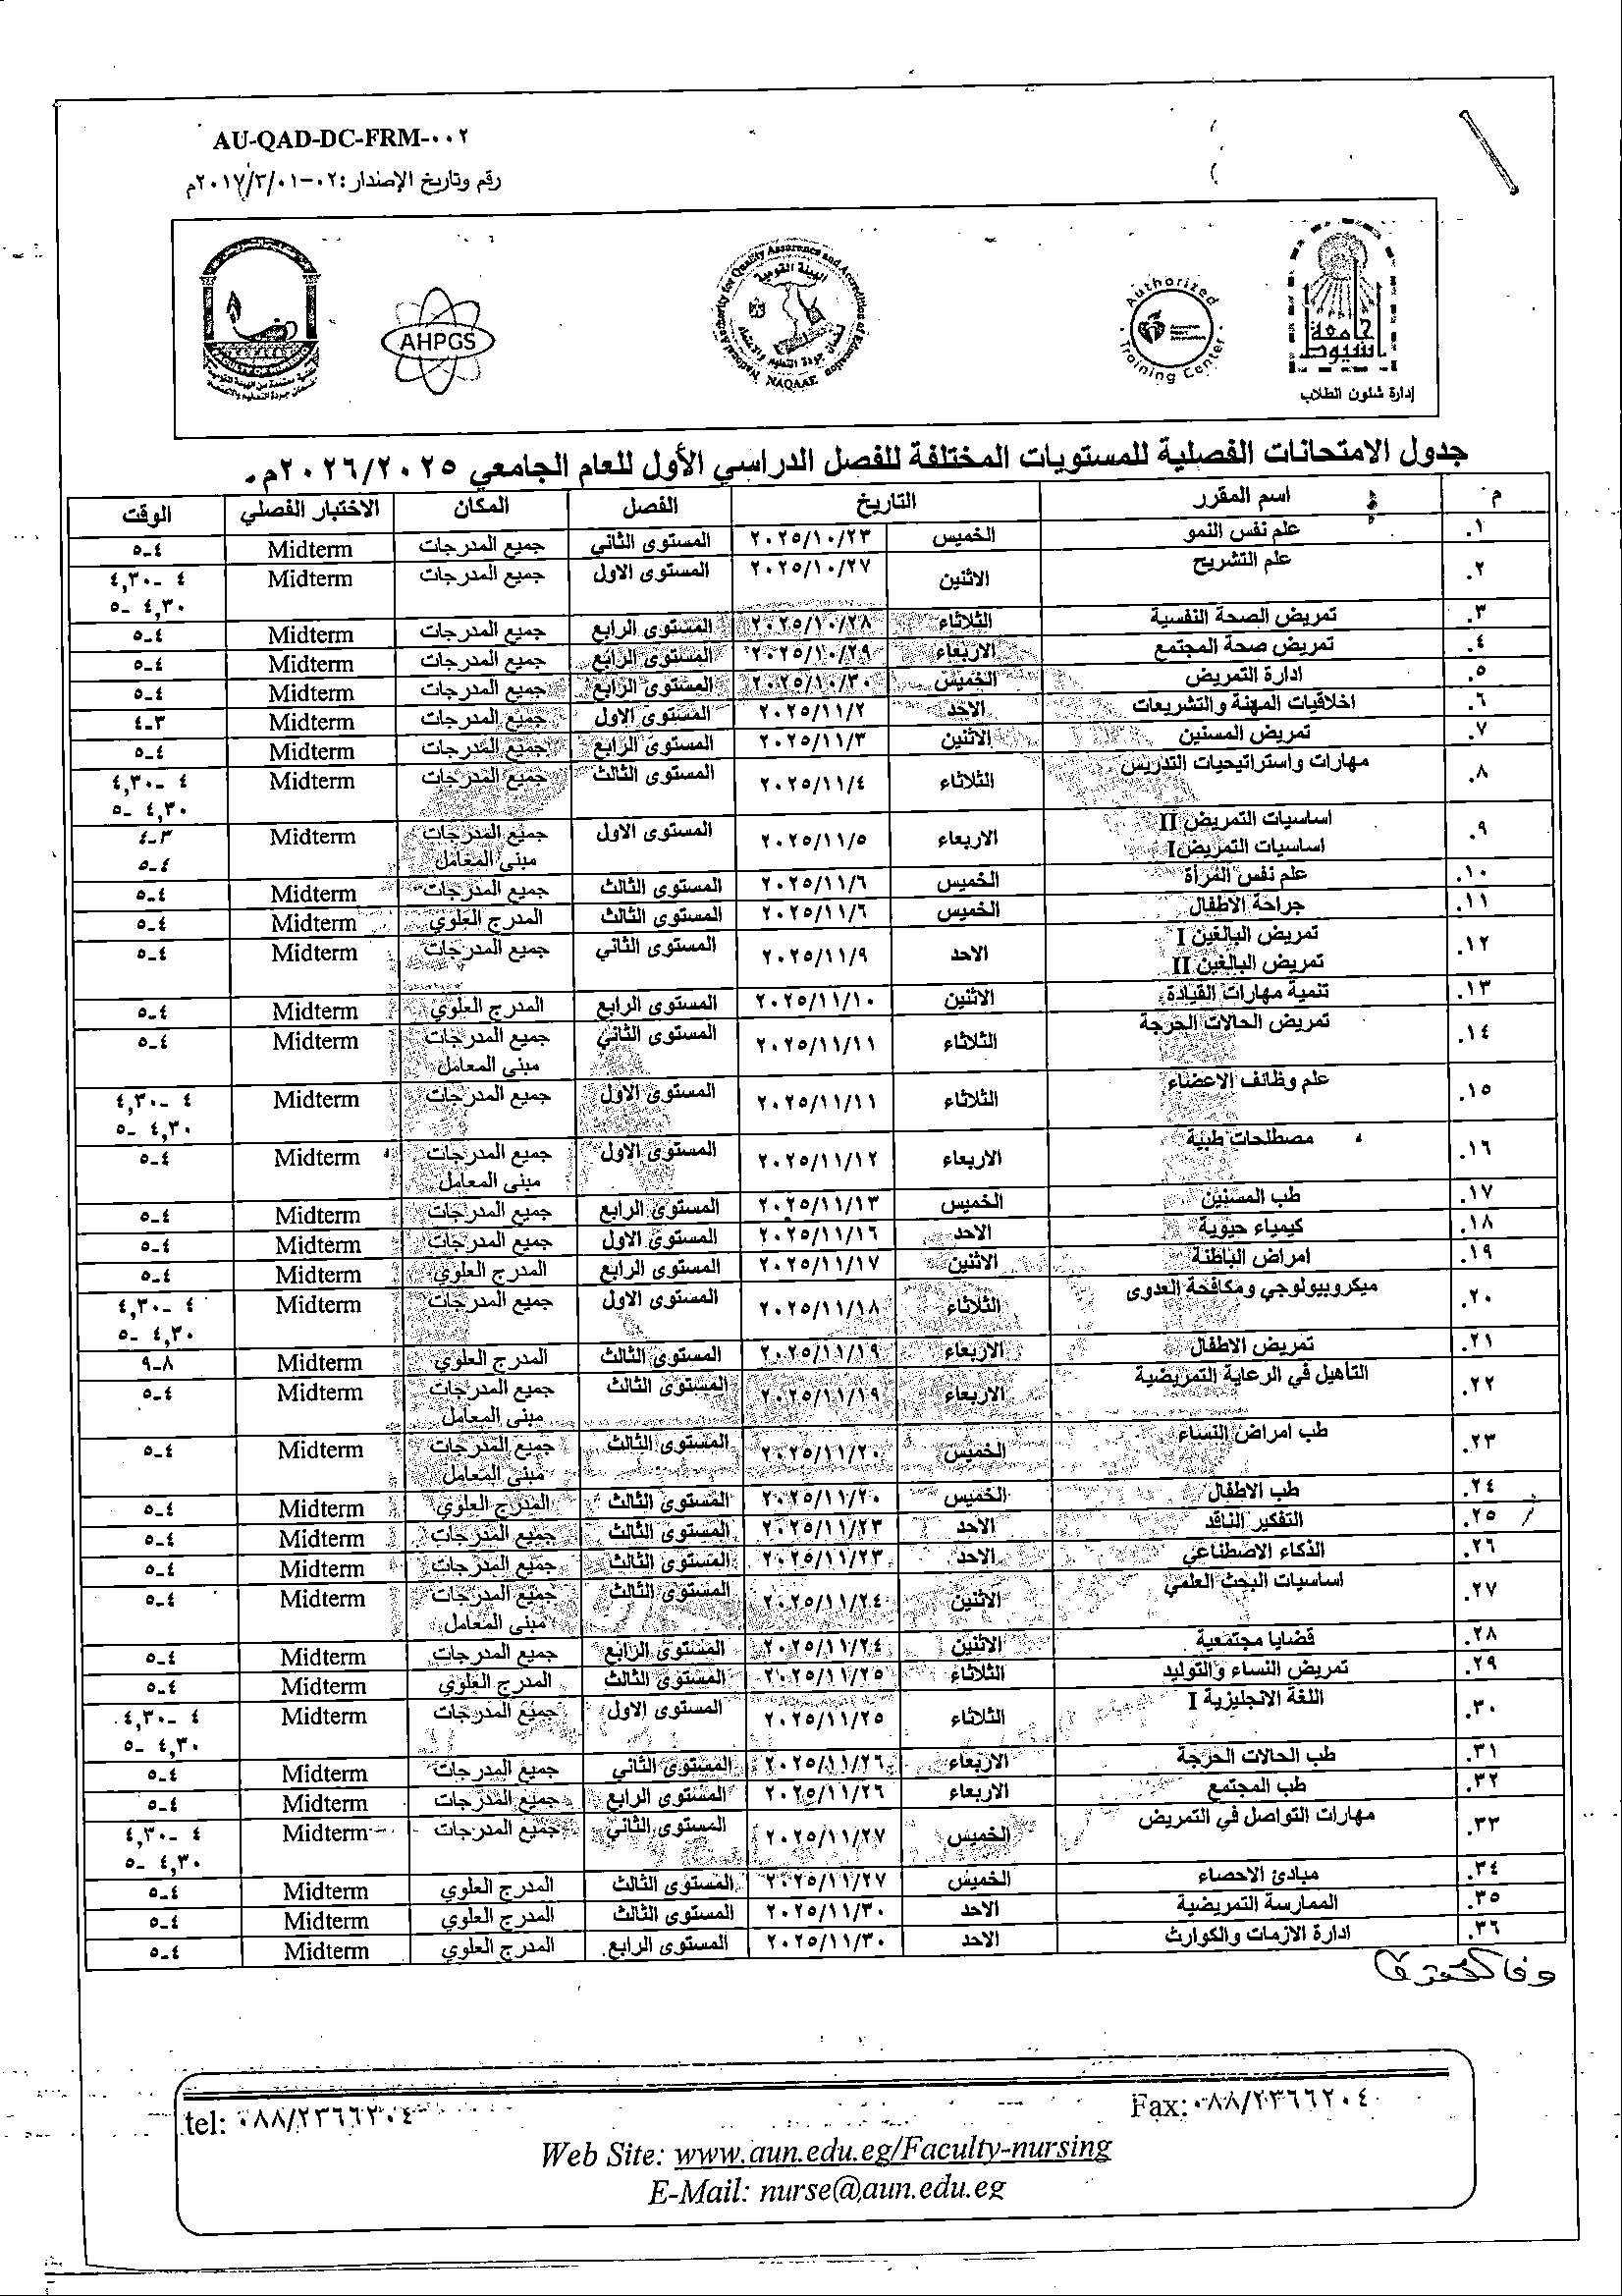 AU-QAD-DC-FRM-٠٠٢
رقم وتاريخ الإصدار: ٠٢-٢٠١٧/٣/٠١م
AHPGS
National Authority for Quality Assurance and Accreditation of Education
الهيئة القومية
لضمان جودة التعليم والاعتماد
NAQAAE
Authorized
Training Center
جامعة
اسيوط
إدارة شئون الطلاب
جدول الامتحانات الفصلية للمستويات المختلفة للفصل الدراسي الأول للعام الجامعي ٢٠٢٦/٢٠٢٥م.
م اسم المقرر التاريخ الفصل المكان الاختبار الفصلي الوقت
١. علم نفس النمو الخميس ٢٠٢٥/١٠/٢٣ المستوى الثاني جميع المدرجات Midterm ٤-٥
٢. علم التشريح الاثنين ٢٠٢٥/١٠/٢٧ المستوى الاول جميع المدرجات Midterm ٤ -٤,٣٠
٤,٣٠ -٥
٣. تمريض الصحة النفسية الثلاثاء ٢٠٢٥/١٠/٢٨ المستوى الرابع جميع المدرجات Midterm ٤-٥
٤. تمريض صحة المجتمع الاربعاء ٢٠٢٥/١٠/٢٩ المستوى الرابع جميع المدرجات Midterm ٤-٥
٥. ادارة التمريض الخميس ٢٠٢٥/١٠/٣٠ المستوى الرابع جميع المدرجات Midterm ٤-٥
٦. اخلاقيات المهنة والتشريعات الاحد ٢٠٢٥/١١/٢ المستوى الاول جميع المدرجات Midterm ٣-٤
٧. تمريض المسنين الاثنين ٢٠٢٥/١١/٣ المستوى الرابع جميع المدرجات Midterm ٤-٥
٨. مهارات واستراتيجيات التدريس الثلاثاء ٢٠٢٥/١١/٤ المستوى الثالث جميع المدرجات Midterm ٤ -٤,٣٠
٤,٣٠ -٥
٩. اساسيات التمريض II الاربعاء ٢٠٢٥/١١/٥ المستوى الاول جميع المدرجات Midterm ٣-٤
اساسيات التمريض I مبنى المعامل ٤-٥
١٠. علم نفس المرأة الخميس ٢٠٢٥/١١/٦ المستوى الثالث جميع المدرجات Midterm ٤-٥
١١. جراحة الاطفال الخميس ٢٠٢٥/١١/٦ المستوى الثالث المدرج العلوي Midterm ٤-٥
١٢. تمريض البالغين I الاحد ٢٠٢٥/١١/٩ المستوى الثاني جميع المدرجات Midterm ٤-٥
تمريض البالغين II
١٣. تنمية مهارات القيادة الاثنين ٢٠٢٥/١١/١٠ المستوى الرابع المدرج العلوي Midterm ٤-٥
١٤. تمريض الحالات الحرجة الثلاثاء ٢٠٢٥/١١/١١ المستوى الثاني جميع المدرجات Midterm ٤-٥
مبنى المعامل
١٥. علم وظائف الاعضاء الثلاثاء ٢٠٢٥/١١/١١ المستوى الاول جميع المدرجات Midterm ٤ -٤,٣٠
٤,٣٠ -٥
١٦. مصطلحات طبية الاربعاء ٢٠٢٥/١١/١٢ المستوى الاول جميع المدرجات Midterm ٤-٥
مبنى المعامل
١٧. طب المسنين الخميس ٢٠٢٥/١١/١٣ المستوى الرابع جميع المدرجات Midterm ٤-٥
١٨. كيمياء حيوية الاحد ٢٠٢٥/١١/١٦ المستوى الاول جميع المدرجات Midterm ٤-٥
١٩. امراض الباطنة الاثنين ٢٠٢٥/١١/١٧ المستوى الرابع المدرج العلوي Midterm ٤-٥
٢٠. ميكروبيولوجي ومكافحة العدوى الثلاثاء ٢٠٢٥/١١/١٨ المستوى الاول جميع المدرجات Midterm ٤ -٤,٣٠
٤,٣٠ -٥
٢١. تمريض الاطفال الاربعاء ٢٠٢٥/١١/١٩ المستوى الثالث المدرج العلوي Midterm ٨-٩
٢٢. التأهيل في الرعاية التمريضية الاربعاء ٢٠٢٥/١١/١٩ المستوى الثالث جميع المدرجات Midterm ٤-٥
مبنى المعامل
٢٣. طب امراض النساء الخميس ٢٠٢٥/١١/٢٠ المستوى الثالث جميع المدرجات Midterm ٤-٥
مبنى المعامل
٢٤. طب الاطفال الخميس ٢٠٢٥/١١/٢٠ المستوى الثالث المدرج العلوي Midterm ٤-٥
٢٥. التفكير الناقد الاحد ٢٠٢٥/١١/٢٣ المستوى الثالث جميع المدرجات Midterm ٤-٥
٢٦. الذكاء الاصطناعي الاحد ٢٠٢٥/١١/٢٣ المستوى الثالث جميع المدرجات Midterm ٤-٥
٢٧. اساسيات البحث العلمي الاثنين ٢٠٢٥/١١/٢٤ المستوى الثالث جميع المدرجات Midterm ٤-٥
مبنى المعامل
٢٨. قضايا مجتمعية الاثنين ٢٠٢٥/١١/٢٤ المستوى الرابع جميع المدرجات Midterm ٤-٥
٢٩. تمريض النساء والتوليد الثلاثاء ٢٠٢٥/١١/٢٥ المستوى الثالث المدرج العلوي Midterm ٤-٥
٣٠. اللغة الانجليزية I الثلاثاء ٢٠٢٥/١١/٢٥ المستوى الاول جميع المدرجات Midterm ٤ -٤,٣٠
٤,٣٠ -٥
٣١. طب الحالات الحرجة الاربعاء ٢٠٢٥/١١/٢٦ المستوى الثاني جميع المدرجات Midterm ٤-٥
٣٢. طب المجتمع الاربعاء ٢٠٢٥/١١/٢٦ المستوى الرابع جميع المدرجات Midterm ٤-٥
٣٣. مهارات التواصل في التمريض الخميس ٢٠٢٥/١١/٢٧ المستوى الثاني جميع المدرجات Midterm ٤ -٤,٣٠
٤,٣٠ -٥
٣٤. مبادئ الاحصاء الخميس ٢٠٢٥/١١/٢٧ المستوى الثالث المدرج العلوي Midterm ٤-٥
٣٥. الممارسة التمريضية الاحد ٢٠٢٥/١١/٣٠ المستوى الثالث المدرج العلوي Midterm ٤-٥
٣٦. ادارة الازمات والكوارث الاحد ٢٠٢٥/١١/٣٠ المستوى الرابع المدرج العلوي Midterm ٤-٥
tel: ٠٨٨/٢٣٦٦٢٠٤ Fax: ٠٨٨/٢٣٦٦٢٠٤
Web Site: www.aun.edu.eg/Faculty-nursing
E-Mail: nurse@aun.edu.eg